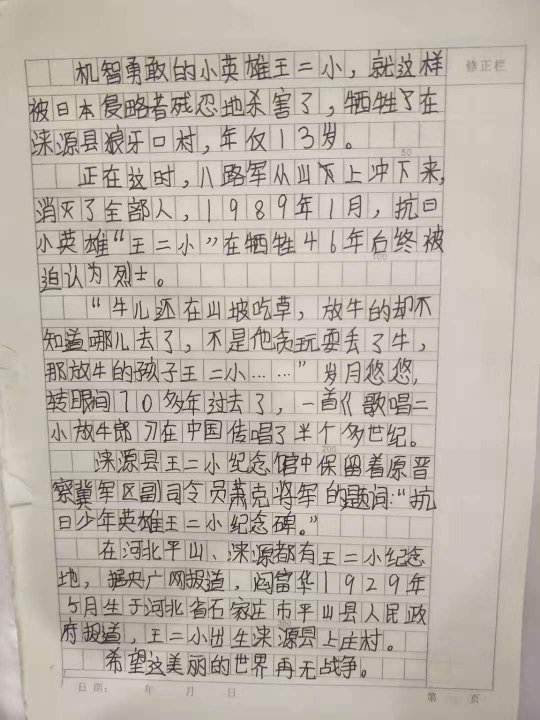 机智勇敢的小英雄王二小，就这样
修正栏
被日本侵略者残忍地杀害了，牺牲了在
涞源县狼牙口村，年仅13岁。
50
正在这时，八路军从山下上冲下来，
消灭了全部人，1989年1月，抗日
小英雄“王二小”在牺牲46年后终被
100
迫认为烈士。
“牛儿还在山坡吃草，放牛的却不
知道哪儿去了，不是他贪玩耍丢了牛，
那放牛的孩子王二小……”岁月悠悠，
转眼间70多年过去了，一首《歌唱二
小放牛郎》在中国传唱了半个多世纪。
200
涞源县王二小纪念馆中保留着原晋
察冀军区副司令员萧克将军的题词：“抗
日少年英雄王二小纪念碑。”
在河北平山、涞源都有王二小纪念
地，据央广网报道，阎富华1929年
5月生于河北省石家庄市平山县人民政
府报道，王二小出生涞源县上庄村。
希望这美丽的世界再无战争。
日期： 年 月 日 第 页